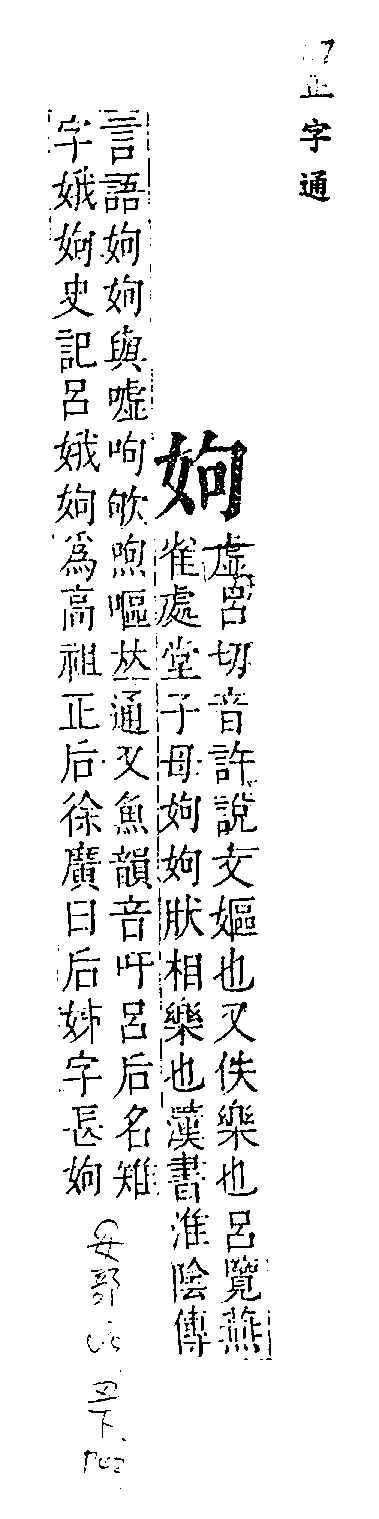 正字通
姁
虛呂切音許說文嫗也又佚樂也呂覽燕
雀處堂子母姁姁狀相樂也漢書淮陰傳
言語姁姁與嘘呴欨喣嘔𠀤通又魚韻音吁呂后名雉
字娥姁史記呂娥姁爲高祖正后徐廣曰后姊字長姁
女部
四下